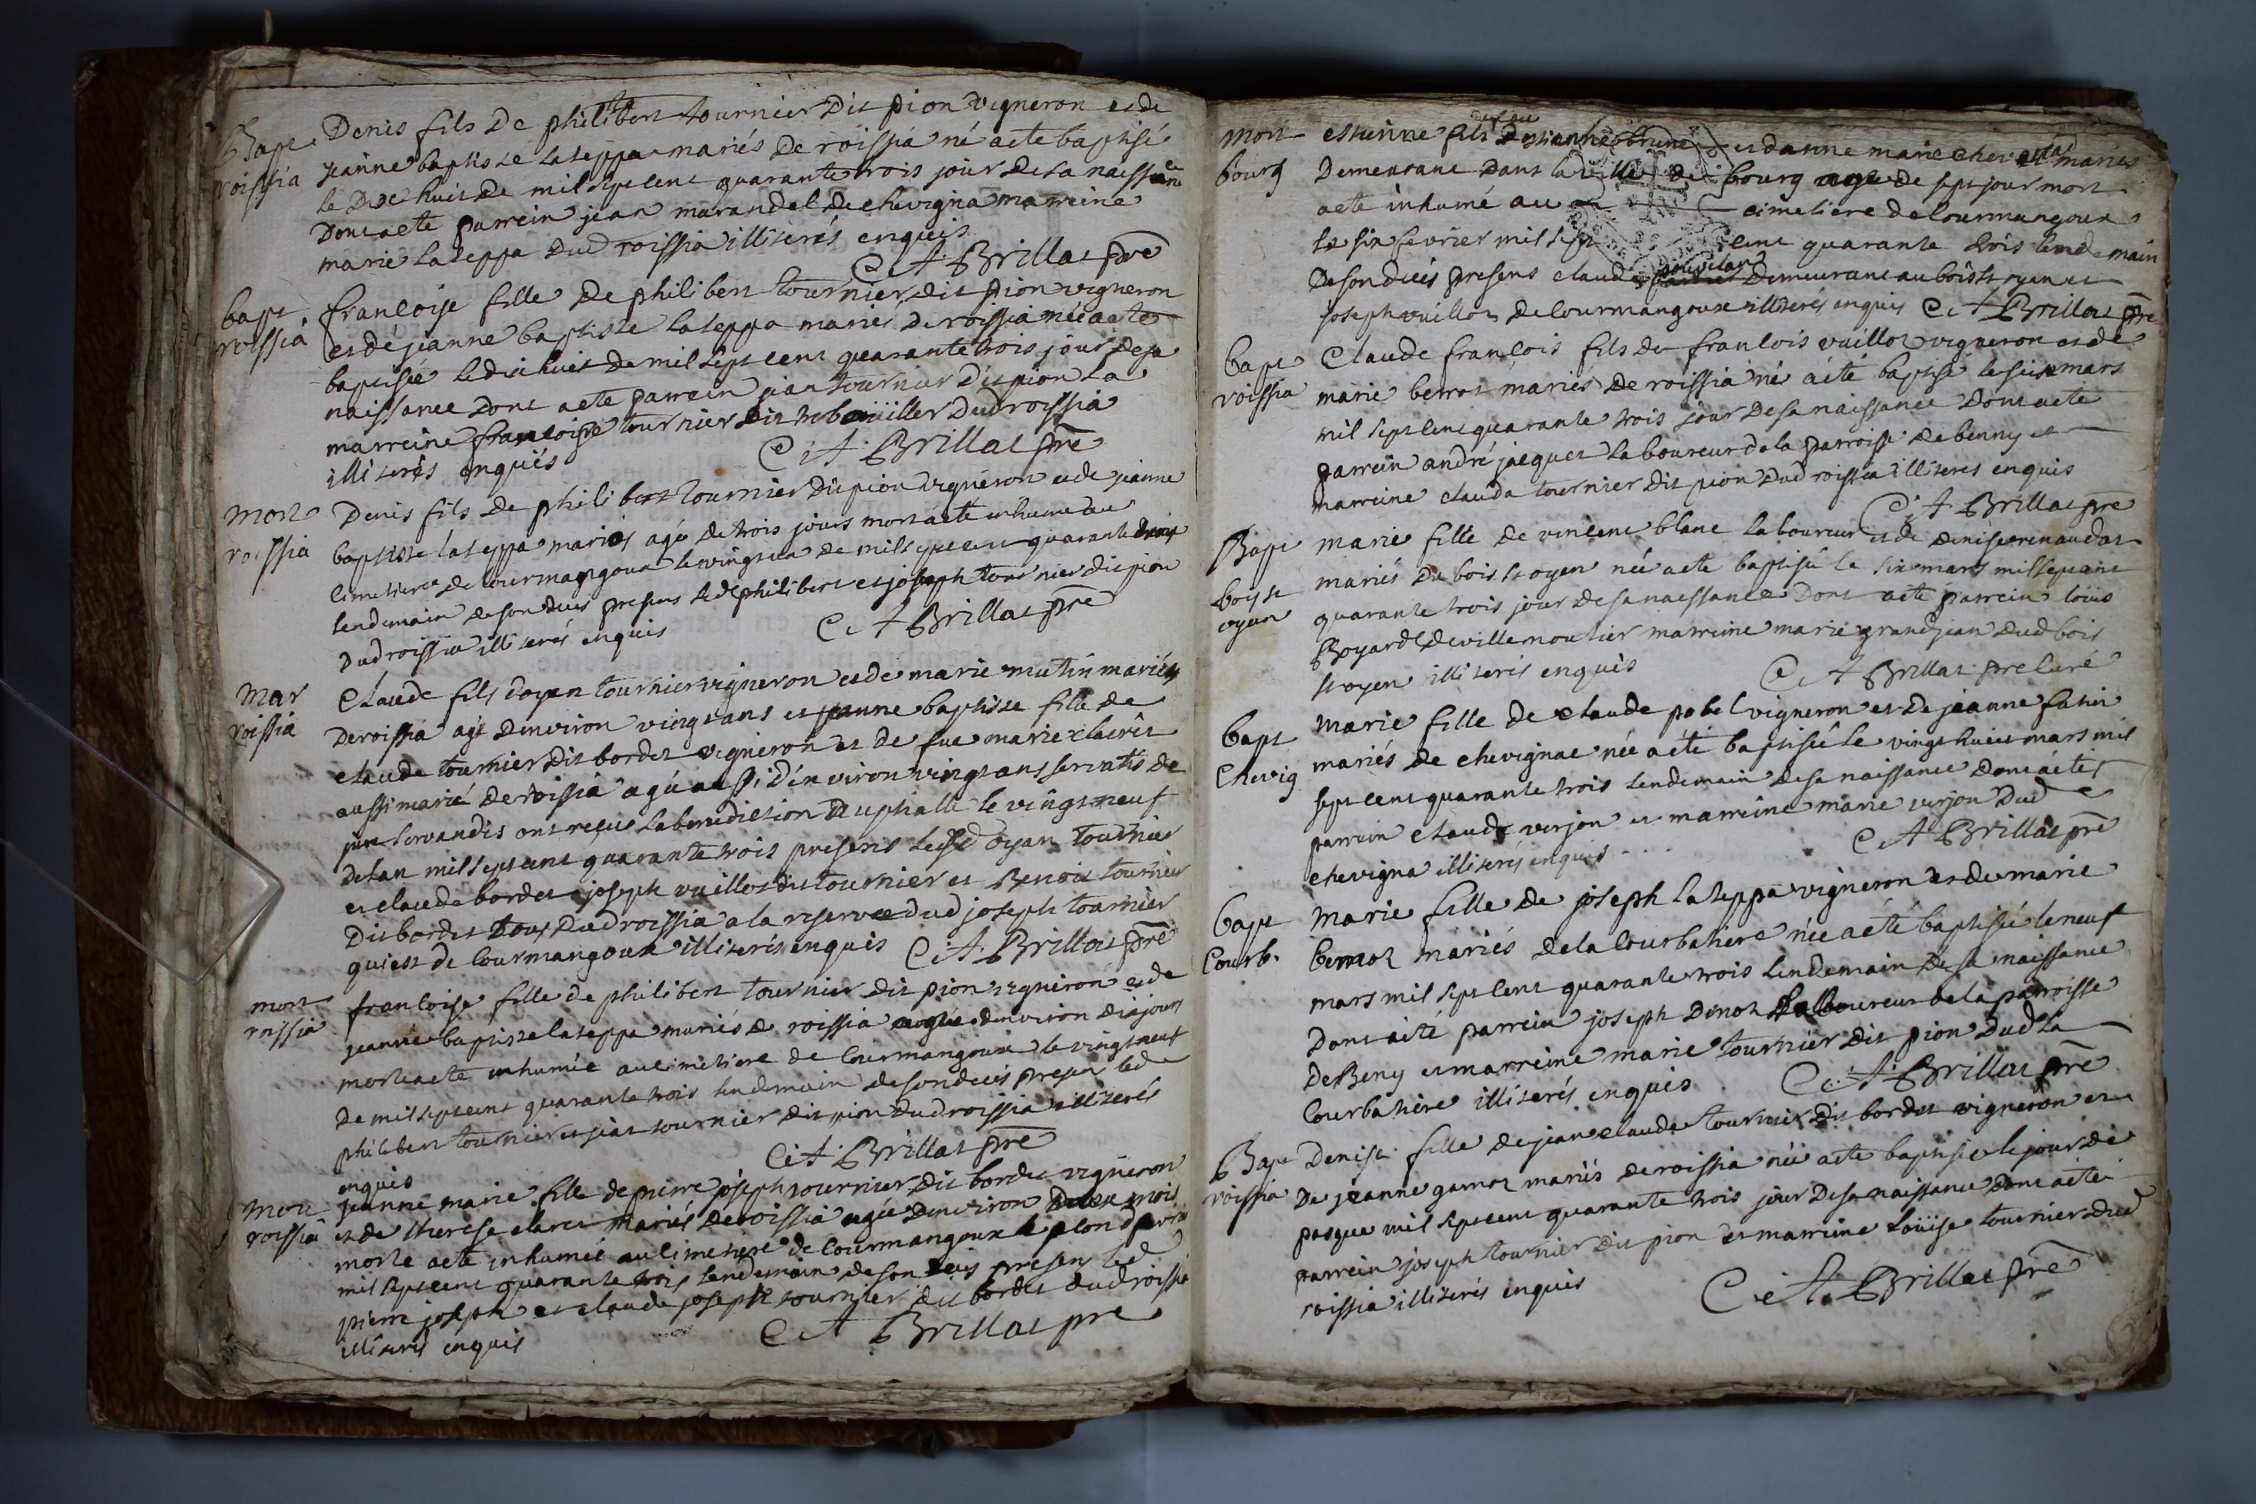 Bapt
roissia
Denis fils De philibert tournier Dit pion vigneron et de
jeanne baptiste lateppa mariés De roissia né a eté baptisé
le Dix huit De mil sept cent quarante trois jour De sa naissance
Dont acte parrein jean marandel de chevigna marreine
marie lateppa Dud roissia illiterés enquis
C A Brillat pre
bapt
roissia
francoise fille De philibert tournier dit pion vigneron
et dé jeanne baptiste lateppa mariés De roissia née a eté
baptisée le dix huit De mil sept cent quarante trois jour De sa
naissance Dont acte parrein jean tournier Dit pion La
marreine francoise tournier Dit Dud roissia
illiterés enquis
C A Brillat pre
mort
roissia
Denis fils De philibert tournier Dit pion vigneron et de jeanne
baptiste lateppa mariés agé De trois jours mort a eté inhumé au
cimetiere De courmangoux le vingt un de mil sept cent quarante trois
lendemain de son deces presens led philibert et joseph tournier dit pion
Dud roissia illiterés enquis
C A Brillat pre
mar
roissia
Claude fils doyen tournier vigneron et de marie mutin mariés
De roissia agé denviron vingt ans et jeanne baptiste fille de
claude tournier Dit bordet vigneron et de fue marie claret
aussi marié De roissia agée aussi denviron vingt ans servatis de
jure servandis ont reçu la benediction nuptialle le vingt neuf
De lan mil sept cent quarante trois presens lesd oyan tournier
et claude bordet joseph vuillot dit tournier et Benoit tournier
Dit bordet tous Dud roissia a la reserve dud joseph tournier
qui est De Courmangoux illiterés enquis
C A Brillat pre
mort
roissia
francoise fille de philibert tournier dit pion vigneron et de
jeanne baptiste lateppa mariés de roissia agée denviron dix jours
morte a eté inhumée au cimetiere de Courmangoux le vingt neuf
De mil sept cent quarante trois lendemain de son deces presens led
philibert tournier et jean tournier dit pion dud roissia illiterés
enquis
C A Brillat pre
mort
roissia
jeanne marie fille de pierre joseph tournier dit bordet vigneron
et de therese claret mariés De roissia agée Denviron Deux mois
morte a eté inhumée au cimetiere de Courmangoux le
mil sept cent quarante trois lendemain de son deces presens led
pierre joseph et claude joseph tournier dit bordet dud roissia
illiterés enquis
C A Brillat pre
mort
bourg
estienne fils Destienne brune et danne marie chev mariés
Demeurant Dans la ville De bourg agé de sept jour mort
a eté inhumé au cimetiere de Courmangoux
le six fevrier mil sept cent quarante trois lendemain
De son deces presens claude Demeurant au bois st oyen et
joseph vuillot De Courmangoux illiterés enquis C A Brillat pre
bapt
roissia
Claude francois fils de francois vuillot vigneron et de
marie bernot mariés De roissia né a eté baptisé le six mars
mil sept cent quarante trois jour De sa naissance Dont acte
parrein andré jacquet laboureur de la parroisse de benny et
marreine clauda tournier dit pion Dud roissia illiterés enquis
C A Brillat pre
Bapt
bois st
oyen
marie fille De vincent blanc laboureur et de denise renaudat
mariés Du bois st oyen née a eté baptisée le six mars mil sept cent
quarante trois jour De sa naissance Dont acte parrein loüis
Boyard De villemoutier marreine marie grandjean Dud bois
st oyen illiterés enquis
C A Brillat pre curé
bapt
Chevig
marie fille de claude pobel vigneron et De jeanne fatin
mariés De chevignat née a eté baptisée le vingt huict mars mil
sept cent quarante trois lendemain De sa naissance Dont acte
parrein claude verjon et marreine marie verjon Dud
chevigna illiterés enquis
C A Brillat pre
bapt
Courb.
marie fille de joseph lateppa vigneron et de marie
bernot mariés De la Courbatiere née a eté baptisée le neuf
mars mil sept cent quarante trois lendemain De sa naissance
Dont acte parrein joseph Donot laboureur De la parroisse
De Beny et marreine marie tournier Dit pion Dud La
Courbatiere illiterés enquis
C A Brillat pre
Bapt
roissia
Denise fille de jean claude tournier dit bordet vigneron et
De jeanne garnot mariés De roissia née a eté baptisée le jour de
pasque mil sept cent quarante trois jour De sa naissance Dont acte
parrein joseph tournier dit pion et marreine loüise tournier dud
roissia illiterés enquis
C A Brillat pre